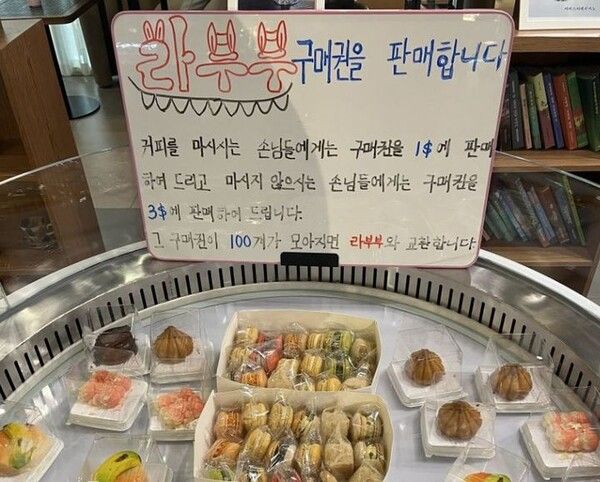 라부부 구매권을 판매합니다
커피를 마시시는 손님들에게는 구매권을 1$에 판매
하여 드리고 마시지 않으시는 손님들에게는 구매권을
3$에 판매하여 드립니다.
그 구매권이 100개가 모아지면 라부부와 교환합니다